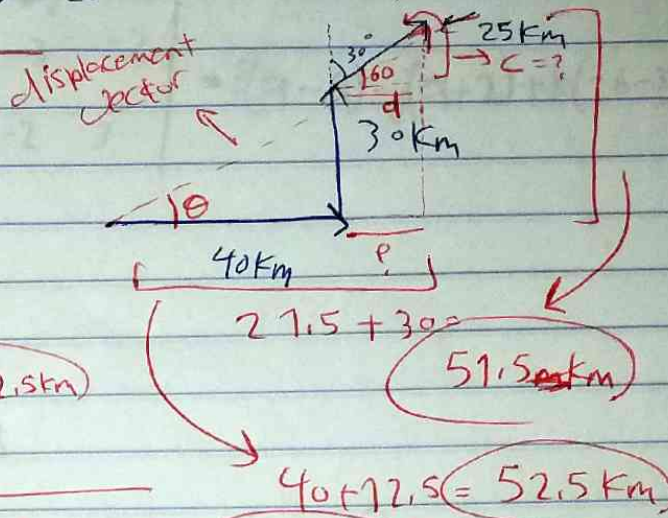 displacement
vector
30°
25 Km
60
→ C = ?
d
30 Km
θ
40 Km
P
21.5 + 30 =
51.5 Km
2.5 km
40 + 12.5 = 52.5 Km